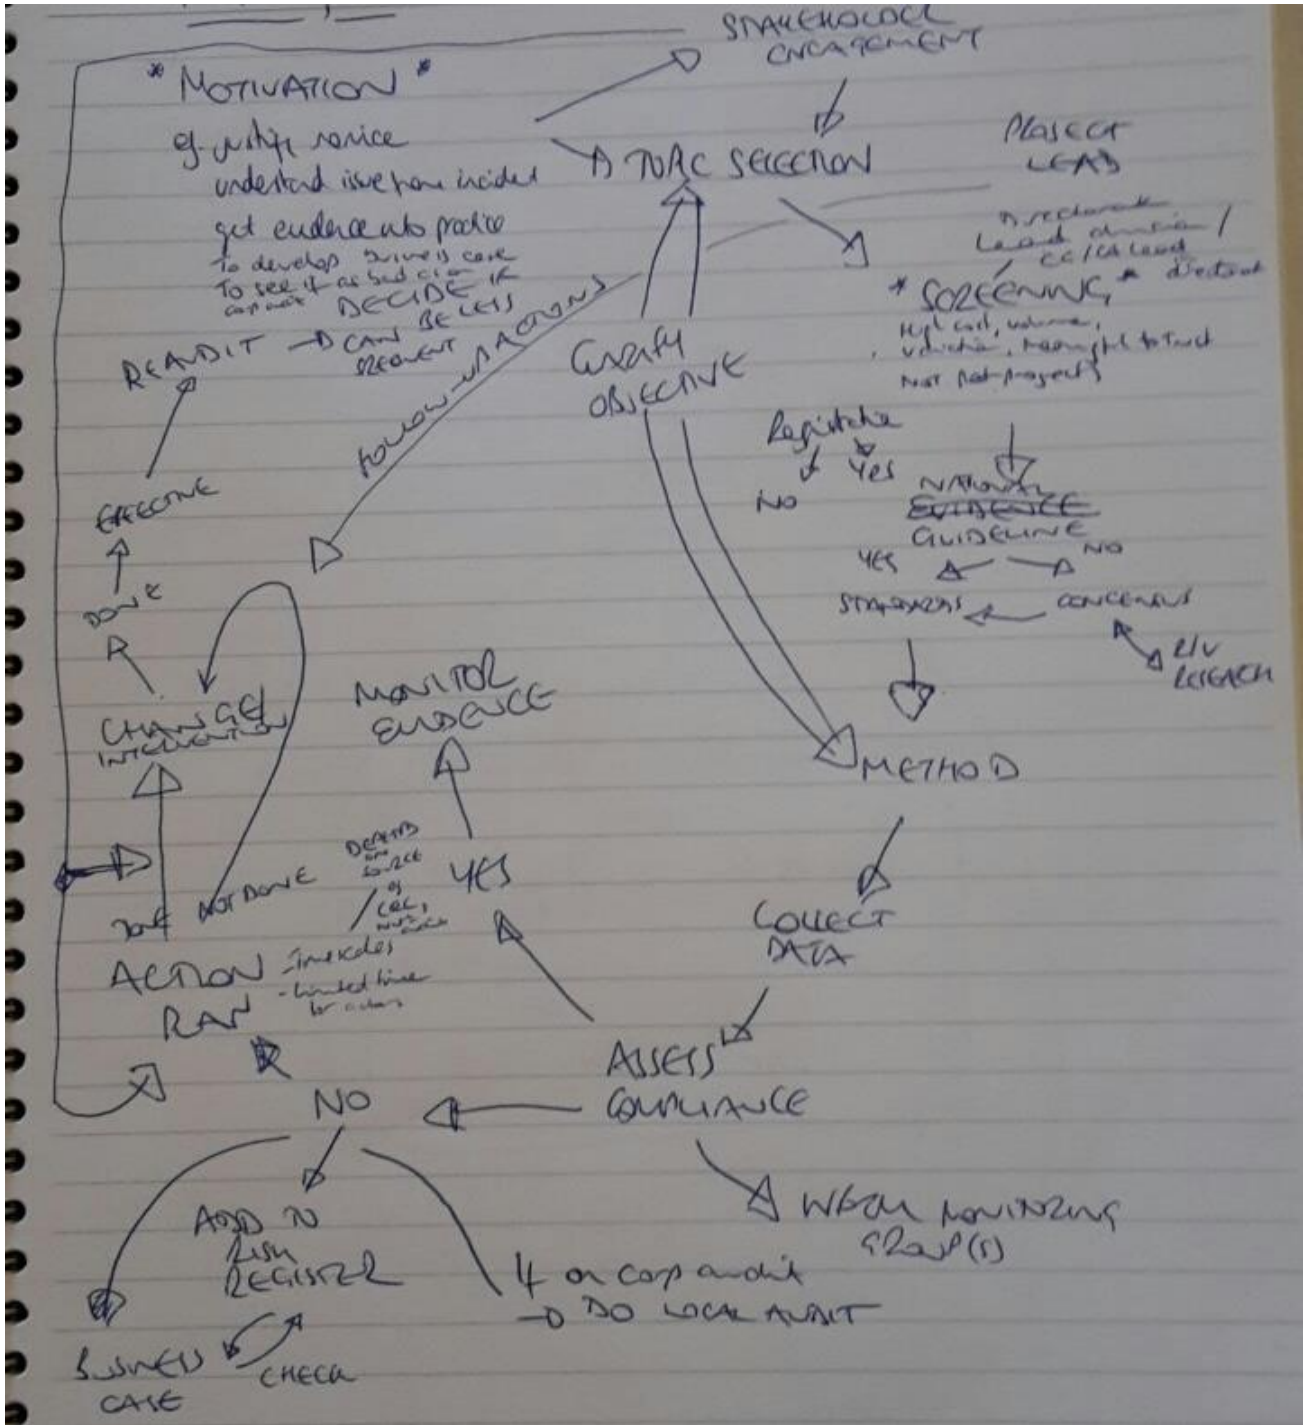 STAKEHOLDER
ENGAGEMENT
* MOTIVATION *
eg justify service
understand issue from incident
get evidence into practice
To develop business case
To see if as bad as on
DECIDE IF
REAUDIT → CAN BE LESS
FREQUENT
TOPIC SELECTION
PROJECT
LEAD
Directorate
Lead clinician /
CE/CA Lead
directorate
* SCREENING *
High cost, volume,
variation, meaningful to Trust
Not pet projects
FOLLOW-UP ACTIONS
CLARIFY
OBJECTIVE
Registration
NO
Yes
NATIONAL
EVIDENCE
GUIDELINE
YES
NO
STANDARDS
CONCENSUS
R/V
RESEARCH
EFFECTIVE
DONE
CHANGE/
INTERVENTION
MONITOR
EVIDENCE
METHOD
DONE
NOT DONE
DEPENDS
ON
SOURCE
YES
COLLECT
DATA
ACTION
PLAN
- Timescales
- Limited time
for actions
ASSESS
COMPLIANCE
NO
ADD TO
RISK
REGISTER
WHICH MONITORING
GROUP(S)
If on corp audit
→ DO LOCAL AUDIT
BUSINESS
CASE
CHECK